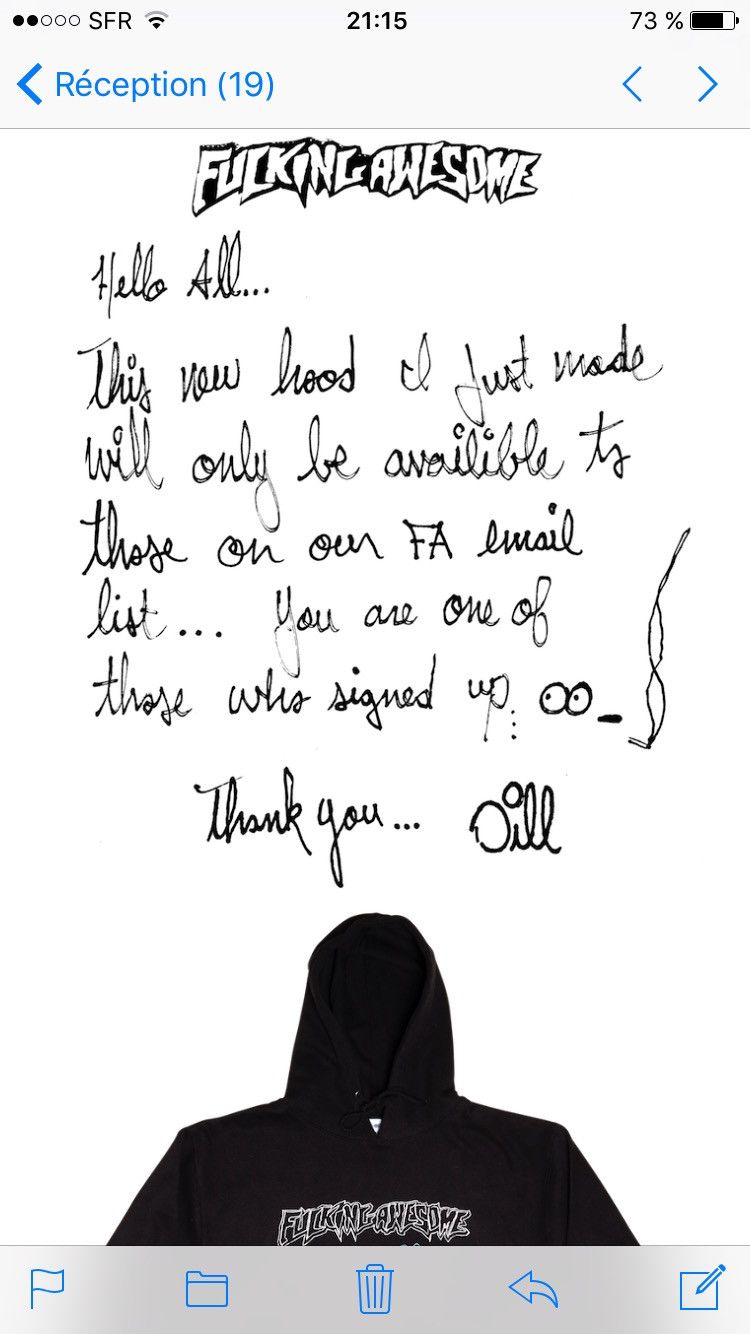 SFR 21:15 73 %
Réception (19)
FUCKING AWESOME
Hello All...
This new hood I just made
will only be availible to
those on our FA email
list... You are one of
those who signed up...
Thank you... Dill
FUCKING AWESOME